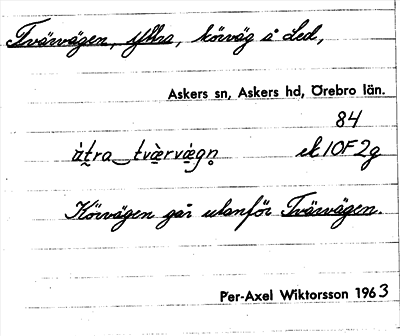 Tvärvägen, yttra, körväg å Led,
Askers sn, Askers hd, Örebro län.
84
ìt̰ra‿tvæ̀rvæ̠gn̥ ek.10F2g
Körvägen går utanför Tvärvägen.
Per-Axel Wiktorsson 1963